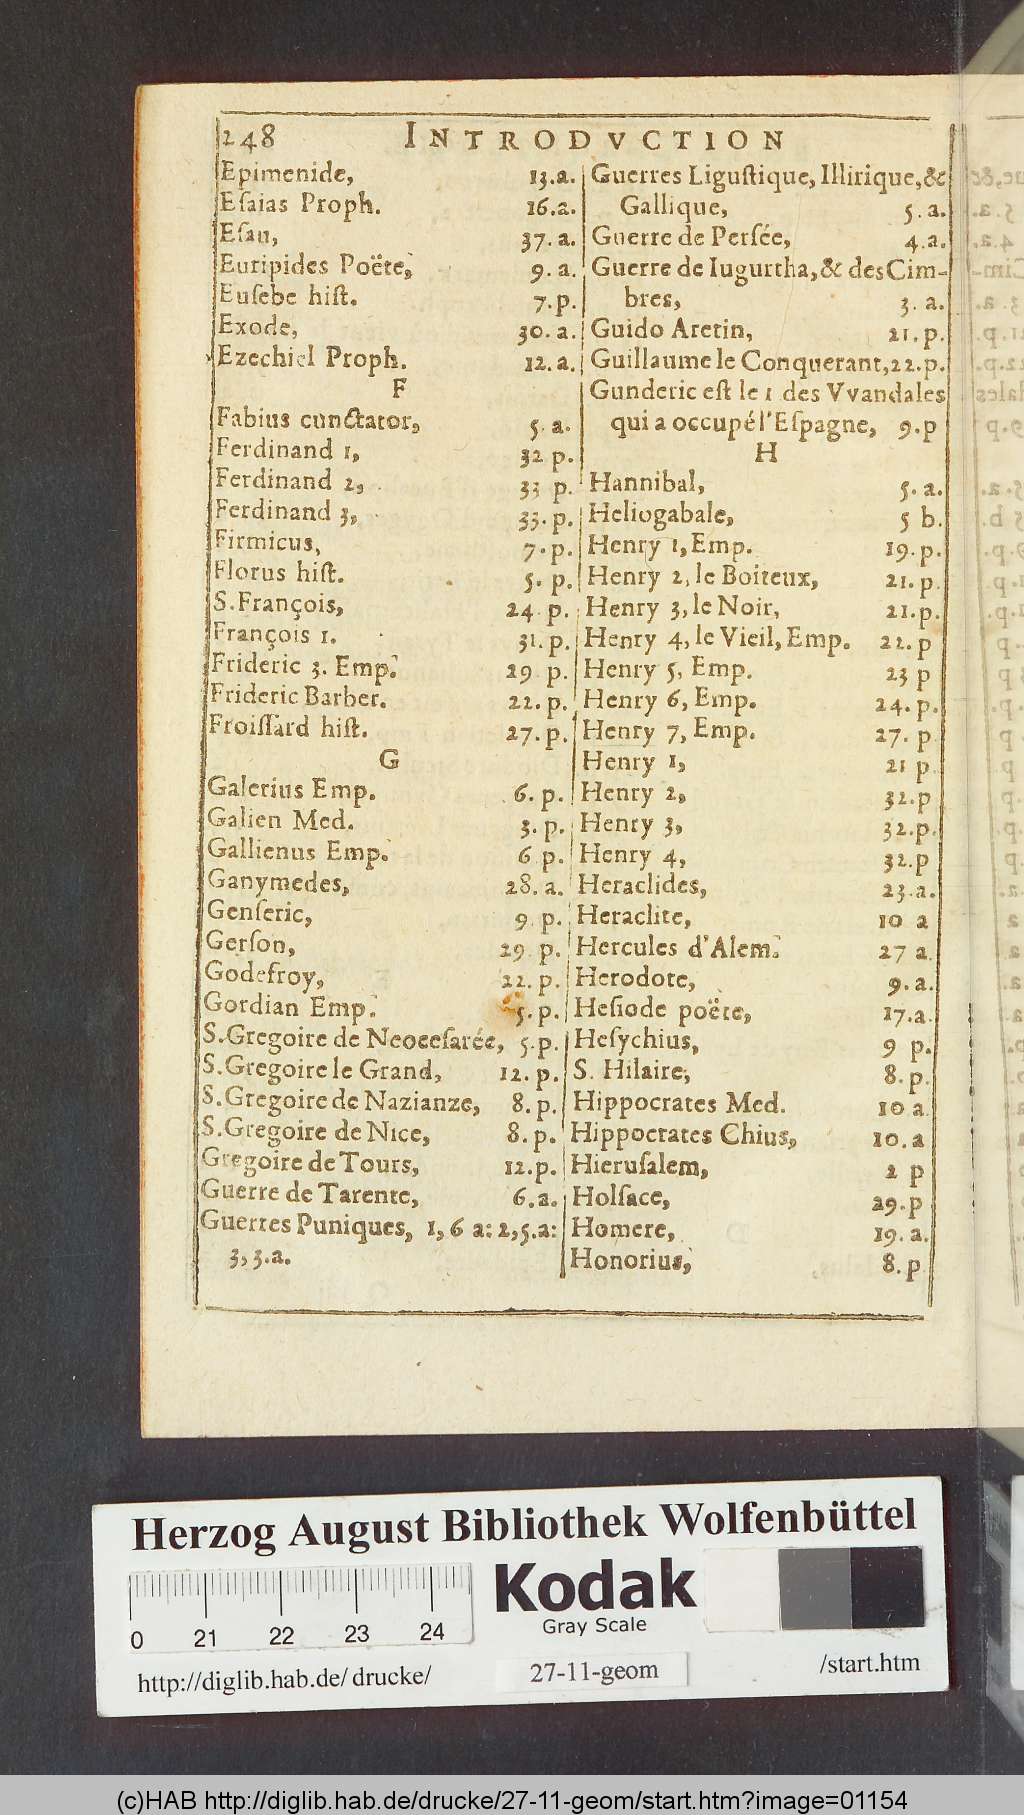 248 INTRODVCTION
Epimenide, 13.a.
Eſaias Proph. 16.a.
Eſau, 37.a.
Euripides Poëte, 9.a.
Euſebe hiſt. 7.p.
Exode, 30.a.
Ezechiel Proph. 12.a.
F
Fabius cunctator, 5.a.
Ferdinand 1, 32 p.
Ferdinand 2, 33 p.
Ferdinand 3, 33.p.
Firmicus, 7.p.
Florus hiſt. 5.p.
S.François, 24 p.
François 1. 31.p.
Frideric 3. Emp. 29 p.
Frideric Barber. 22.p.
Froiſſard hiſt. 27.p.
G
Galerius Emp. 6.p.
Galien Med. 3.p.
Gallienus Emp. 6 p.
Ganymedes, 28.a.
Genſeric, 9 p.
Gerſon, 29 p.
Godefroy, 22.p.
Gordian Emp. 5.p.
S.Gregoire de Neoceſarée, 5.p.
S.Gregoire le Grand, 12.p.
S.Gregoire de Nazianze, 8.p.
S.Gregoire de Nice, 8.p.
Gregoire de Tours, 12.p.
Guerre de Tarente, 6.a.
Guerres Puniques, 1, 6 a: 2, 5.a:
3, 3.a.
Guerres Liguſtique, Illirique, &
Gallique, 5.a.
Guerre de Perſée, 4.a.
Guerre de Iugurtha, & des Cim-
bres, 3.a.
Guido Aretin, 21.p.
Guillaume le Conquerant, 22.p.
Gunderic eſt le 1 des Vvandales
qui a occupé l'Eſpagne, 9.p
H
Hannibal, 5.a.
Heliogabale, 5 b.
Henry 1, Emp. 19.p.
Henry 2, le Boiteux, 21.p.
Henry 3, le Noir, 21.p.
Henry 4, le Vieil, Emp. 22.p
Henry 5, Emp. 23 p
Henry 6, Emp. 24.p.
Henry 7, Emp. 27.p
Henry 1, 21 p
Henry 2, 32.p
Henry 3, 32.p.
Henry 4, 32.p
Heraclides, 23.a.
Heraclite, 10 a
Hercules d'Alem. 27 a
Herodote, 9.a.
Heſiode poëte, 17.a.
Heſychius, 9 p.
S. Hilaire, 8.p.
Hippocrates Med. 10 a
Hippocrates Chius, 10.a
Hieruſalem, 2 p
Holſace, 29.p
Homere, 19.a.
Honorius, 8.p
Herzog August Bibliothek Wolfenbüttel
0 21 22 23 24
Kodak
Gray Scale
http://diglib.hab.de/ drucke/ 27-11-geom /start.htm
(c)HAB http://diglib.hab.de/drucke/27-11-geom/start.htm?image=01154